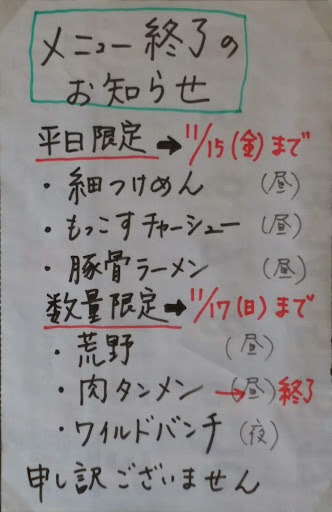 メニュー終了の
お知らせ
平日限定→11/15(金)まで
・細つけめん (昼)
・もっこすチャーシュー(昼)
・豚骨ラーメン (昼)
数量限定→11/17(日)まで
・荒野 (昼)
・肉タンメン→(昼)終了
・ワイルドパンチ(夜)
申し訳ございません